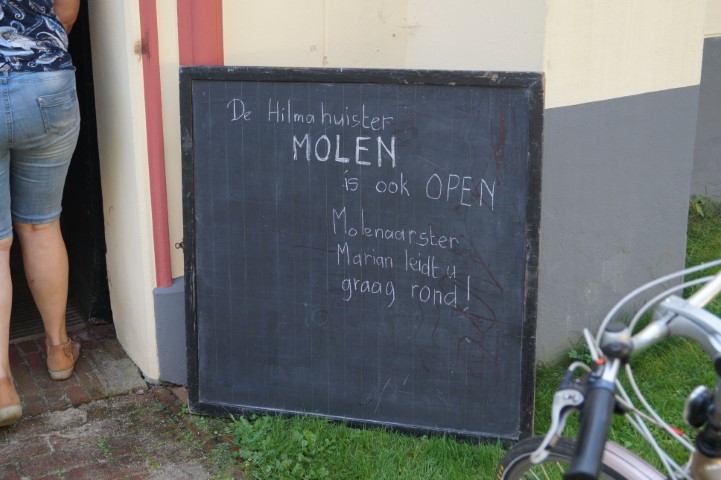 De Hilmahuister
MOLEN
is ook OPEN
Molenaarster
Marian leidt u
graag rond!